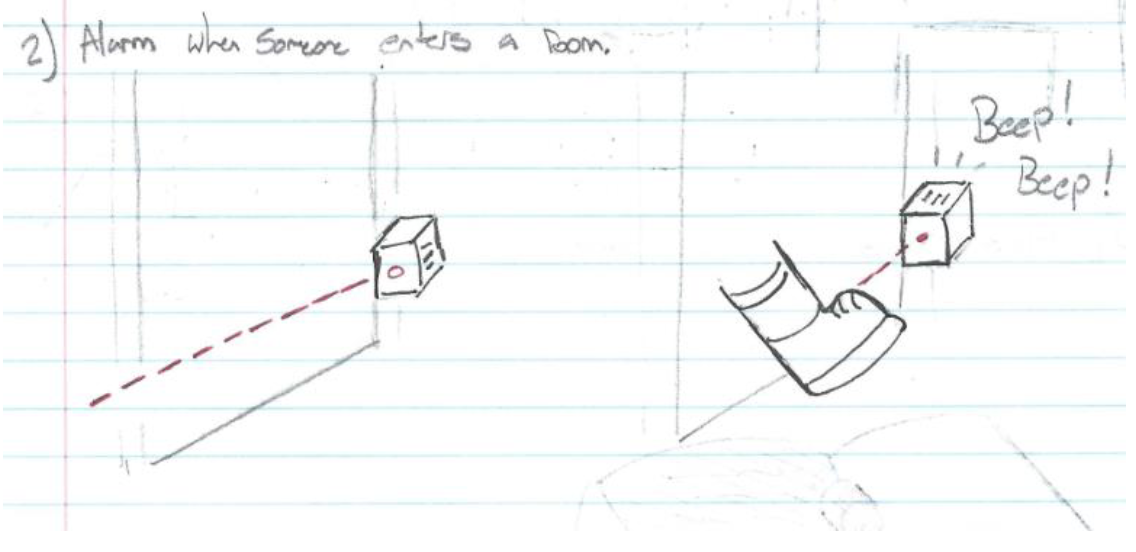 2) Alarm when Someone enters a room.
Beep!
Beep!